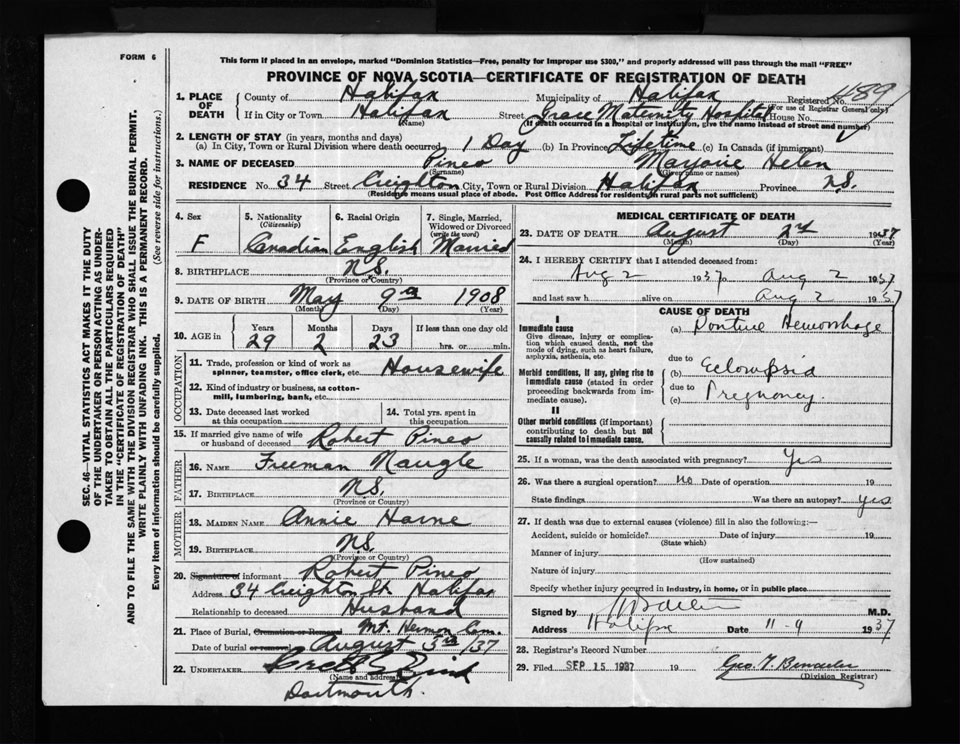 FORM 6
This form if placed in an envelope, marked "Dominion Statistics—Free, penalty for improper use $300," and properly addressed will pass through the mail "FREE"
PROVINCE OF NOVA SCOTIA—CERTIFICATE OF REGISTRATION OF DEATH
1. PLACE OF DEATH
County of Halifax Municipality of Halifax Registered No. 489
(For use of Registrar General only)
If in City or Town Halifax Street Grace Maternity Hospital House No.
(Name) (If death occurred in a hospital or institution, give the name instead of street and number)
2. LENGTH OF STAY (in years, months and days)
(a) In City, Town or Rural Division where death occurred 1 Day (b) In Province Lifetime (c) In Canada (if immigrant)
3. NAME OF DECEASED Pineo Marjorie Helen
(Surname) (Given name or names)
RESIDENCE No. 34 Street Creighton City, Town or Rural Division Halifax Province N.S.
(Residence means usual place of abode. Post Office Address for residents in rural parts not sufficient)
4. Sex F
5. Nationality (Citizenship) Canadian
6. Racial Origin English
7. Single, Married, Widowed or Divorced (write the word) Married
8. BIRTHPLACE N.S.
(Province or Country)
9. DATE OF BIRTH May 9th 1908
(Month) (Day) (Year)
10. AGE in Years Months Days If less than one day old
29 2 23 hrs. or min.
OCCUPATION
11. Trade, profession or kind of work as spinner, teamster, office clerk, etc. Housewife
12. Kind of industry or business, as cotton-mill, lumbering, bank, etc.
13. Date deceased last worked at this occupation
14. Total yrs. spent in this occupation
15. If married give name of wife or husband of deceased Robert Pineo
FATHER
16. NAME Freeman Naugle
17. BIRTHPLACE N.S.
(Province or Country)
MOTHER
18. MAIDEN NAME Annie Horne
19. BIRTHPLACE N.S.
(Province or Country)
20. Signature of informant Robert Pineo
Address 34 Creighton St. Halifax
Relationship to deceased Husband
21. Place of Burial, Cremation or Removal Mt. Hermon Cem.
Date of burial or removal August 3rd/37
22. UNDERTAKER
(Name and address)
Dartmouth.
MEDICAL CERTIFICATE OF DEATH
23. DATE OF DEATH August 2nd 1937
(Month) (Day) (Year)
24. I HEREBY CERTIFY that I attended deceased from:
Aug 2 1937 to Aug 2 1937
and last saw h alive on Aug 2 1937
CAUSE OF DEATH
I
Immediate cause
Give disease, injury or complication which caused death, not the mode of dying, such as heart failure, asphyxia, asthenia, etc.
(a) Pontine Hemorrhage
due to
Morbid conditions, if any, giving rise to immediate cause (stated in order proceeding backwards from immediate cause).
(b) Eclampsia
due to
(c) Pregnancy.
II
Other morbid conditions (if important) contributing to death but not causally related to immediate cause.
25. If a woman, was the death associated with pregnancy? Yes
26. Was there a surgical operation? no Date of operation 19
State findings Was there an autopsy? Yes
27. If death was due to external causes (violence) fill in also the following:—
Accident, suicide or homicide? Date of injury 19
(State which)
Manner of injury
(How sustained)
Nature of injury
Specify whether injury occurred in industry, in home, or in public place
Signed by M.D.
Address Halifax Date 11-9 1937
28. Registrar's Record Number
29. Filed SEP 15 1937 19 Geo. T.
(Division Registrar)
SEC. 46—VITAL STATISTICS ACT MAKES IT THE DUTY
OF THE UNDERTAKER OR PERSON ACTING AS UNDER-
TAKER TO OBTAIN ALL THE PARTICULARS REQUIRED
IN THE "CERTIFICATE OF REGISTRATION OF DEATH"
AND TO FILE THE SAME WITH THE DIVISION REGISTRAR WHO SHALL ISSUE THE BURIAL PERMIT.
WRITE PLAINLY WITH UNFADING INK. THIS IS A PERMANENT RECORD.
Every item of information should be carefully supplied. (See reverse side for instructions.)